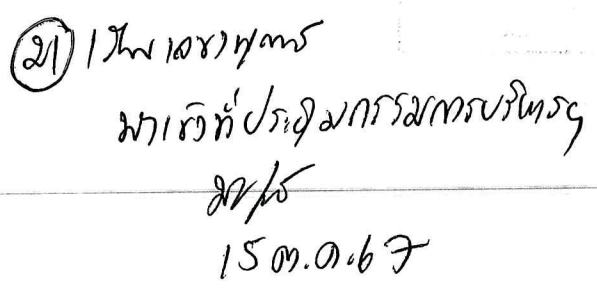 เรียน เลขานุการ
นำเข้าที่ประชุมกรรมการบริหารฯ
15 ต.ค. 67